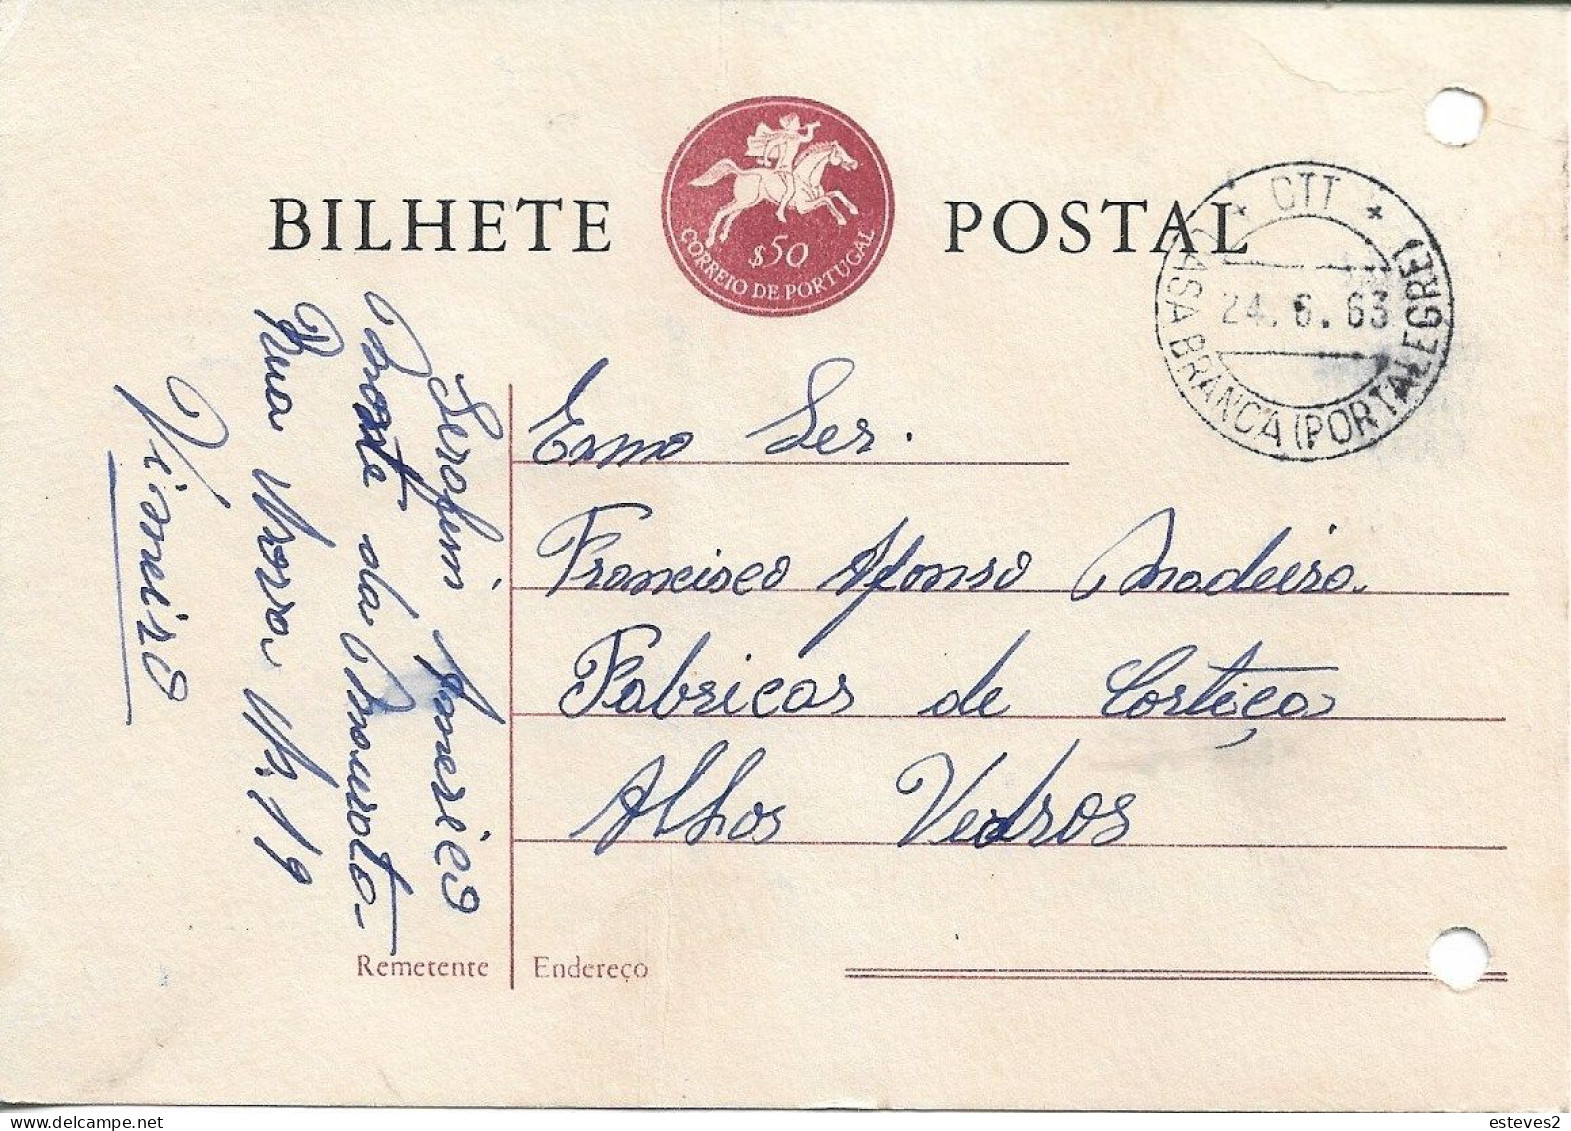 BILHETE POSTAL
$50
CORREIO DE PORTUGAL
* CTT *
24.6.63
CASA BRANCA (PORTALEGRE)
Exmo Ser.
Francisco Afonso Madeira
Fabricas de Cortiça
Alhos Vedros
Serafim Americo
da
Rua Nova Nº 19
Vieneiro
Remetente
Endereço
esteves2